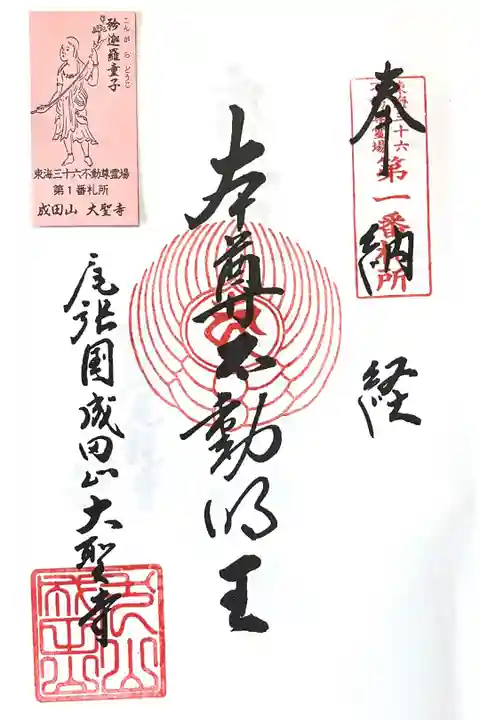 奉納経
東海三十六
不動尊霊場
第一番札所
本尊不動明王
尾張国成田山大聖寺
矜迦羅童子
こんがらどうじ
東海三十六不動尊霊場
第1番札所
成田山 大聖寺